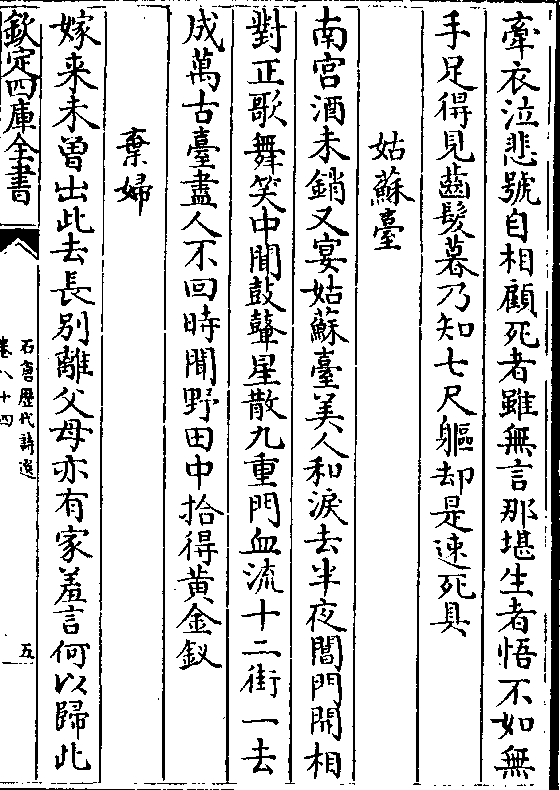 牽衣泣悲號自相顧死者雖無言那堪生者悟不如無
手足得見齒髮暮乃知七尺軀却是速死具
姑蘇臺
南宫酒未銷又宴姑蘇臺美人和淚去半夜閶門開相
對正歌舞笑中聞鼓鼙星散九重門血流十二街一去
成萬古臺盡人不回時聞野田中拾得黄金釵
棄婦
嫁來未曽出此去長别離父母亦有家羞言何以歸此
欽定四庫全書
石倉歷代詩選
卷八十四
五